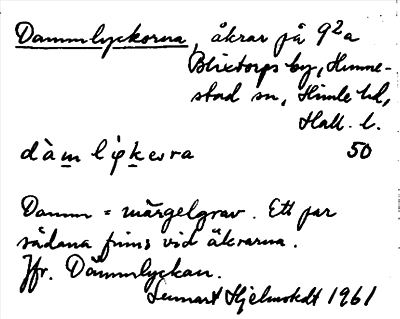 Dammlyckorna, åkrar på 9²a
Blixtorps by, Himme-
stad sn, Himle hd,
Hall. l.
dàm lỳkωra 50
Damm = märgelgrav. Ett par
sådana finns vid åkrarna.
Jfr. Dammlyckan.
Lennart Hjelmstedt 1961